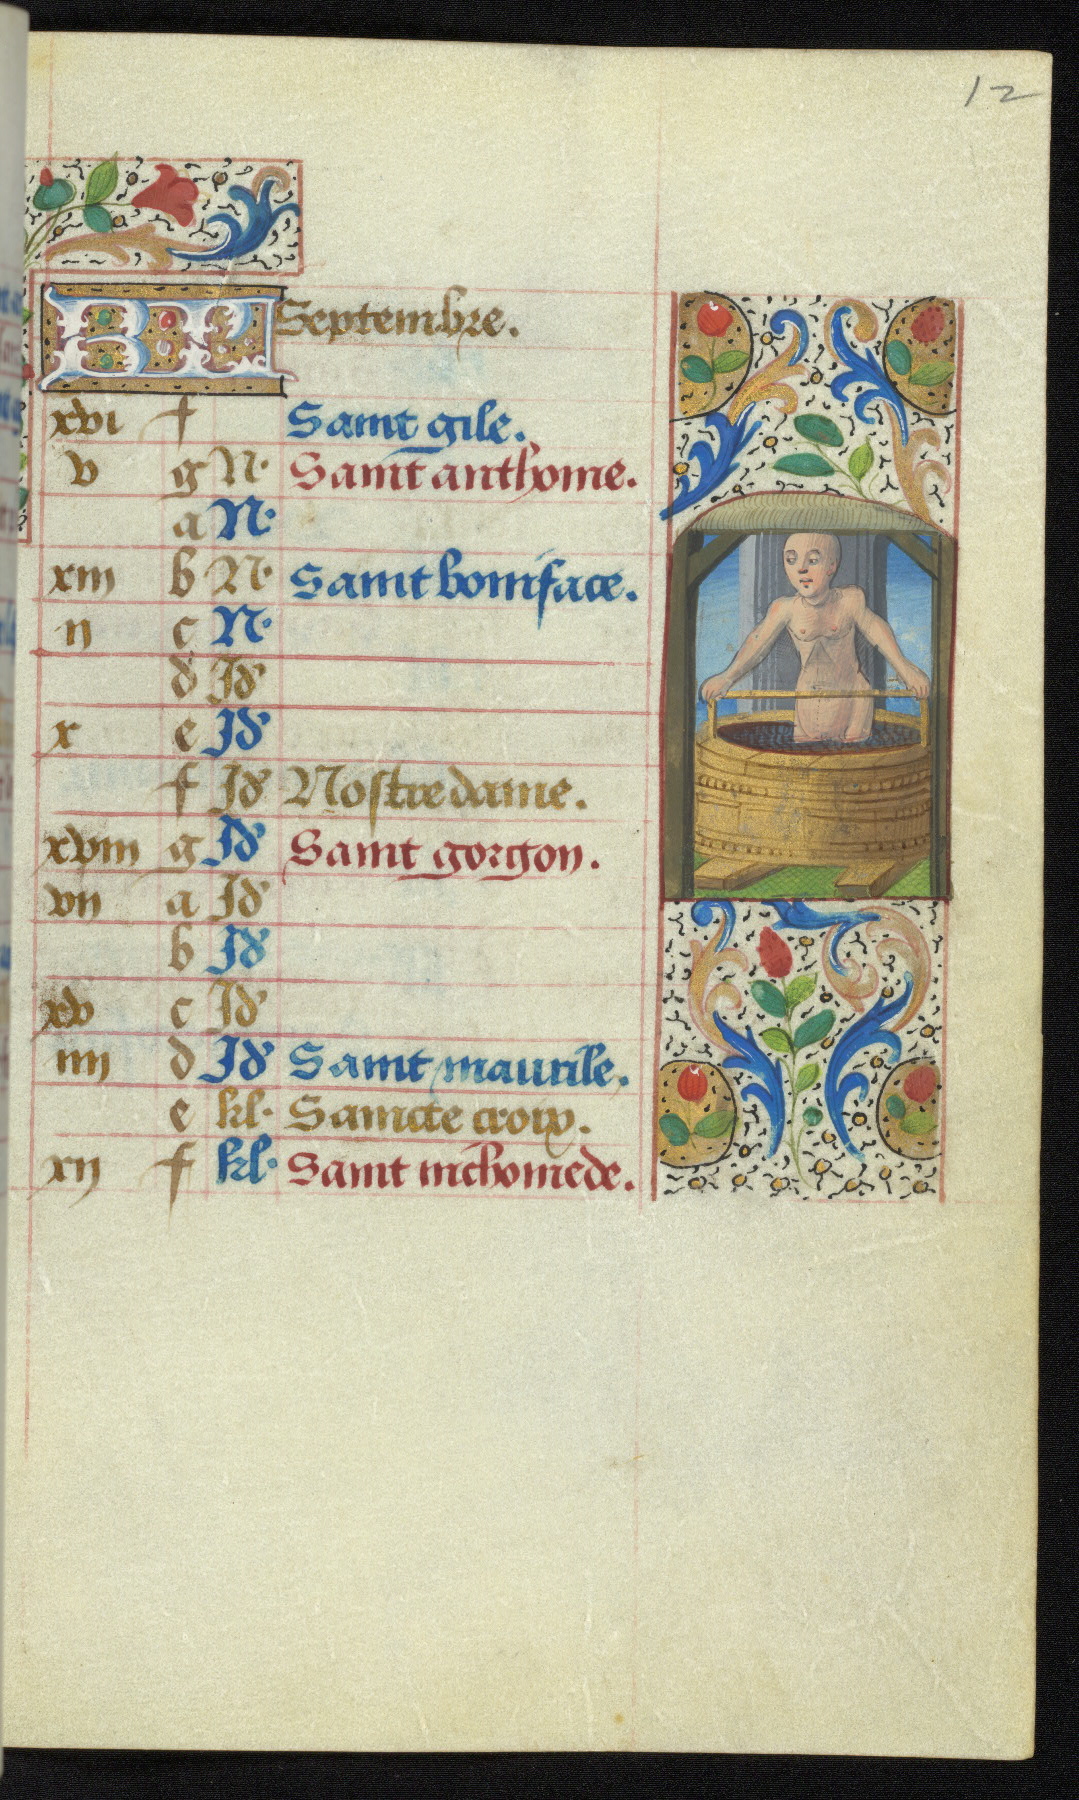 12
KL Septembre.
xvi f Saint gile.
v g N. Saint anthonie.
a N.
xiii b N. Saint boniface.
ii c N.
d Id
x e Id
f Id Nostre dame.
xviii g Id Saint gorgon.
vii a Id
b Id
xv c Id
iiii d Id Saint maurile.
e kl. Saincte croix.
xii f kl. Saint nichomede.